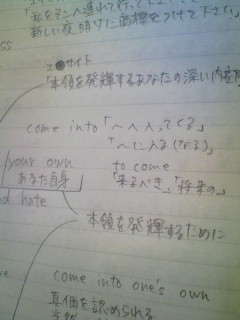 「私をそこへ連れて行って下さい」
新しい夜明けに商標をつけて下さい」
ss
サイト
「本領を発揮するあなたの深い内在
come into「〜へ入ってくる」
「〜に入る(なる)」
your own
あなた自身
to come
「来るべき」「将来の」
d hate
本領を発揮するために
ve
come into one's own
真価を認められる